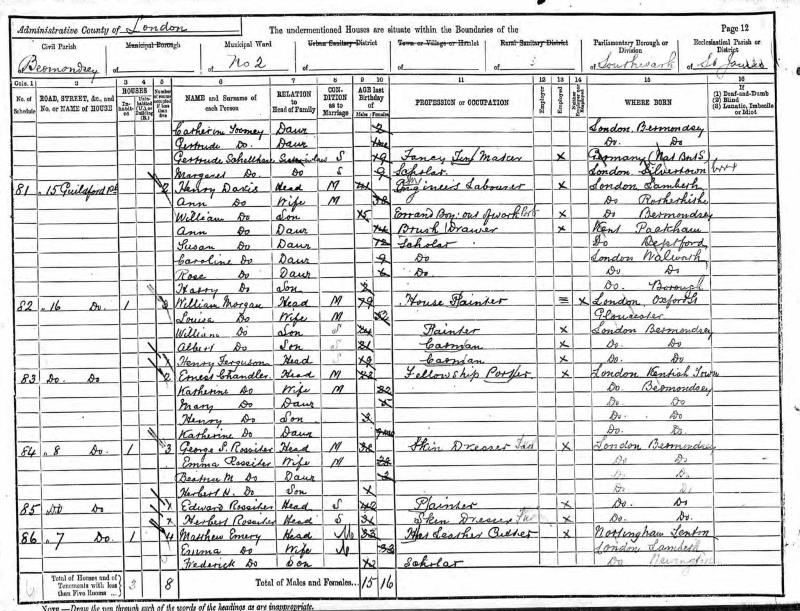 Administrative County of London
The undermentioned Houses are situate within the Boundaries of the
Page 12
Civil Parish
of Bermondsey
Municipal Borough
of
Municipal Ward
of No 2
Urban Sanitary District
of
Town or Village or Hamlet
of
Rural Sanitary District
of
Parliamentary Borough or Division
of Southwark
Ecclesiastical Parish or District
of St James
Cols. 1 2 3 4 5 6 7 8 9 10 11 12 13 14 15 16
No. of Schedule
ROAD, STREET, &c., and No. or NAME of HOUSE
HOUSES
NAME and Surname of each Person
RELATION to Head of Family
CONDITION as to Marriage
AGE last Birthday of
Males Females
PROFESSION or OCCUPATION
Employer
Employed
Neither
WHERE BORN
If (1) Deaf-and-Dumb (2) Blind (3) Lunatic, Imbecile or Idiot
Catherine Daur 2 London Bermondsey
Gertrude Do. Daur Do Do
Gertrude Sister in law S 19 Fancy Maker x Germany
Margaret Do. Do S 9 Scholar London Silvertown
81 15 Guildford 2 Henry Davis Head M 41 Engineers Labourer x London Lambeth
Ann Do Wife M 38 Do Rotherhithe
William Do Son 15 Errand Boy: out of work x Do Bermondsey
Ann Do Daur 14 Brush Drawer x Kent Peckham
Susan Do Daur 12 Scholar Do Deptford
Caroline Do Daur 9 Do London Walworth
Rose Do Daur Do Do Do
Harry Do Son Do. Borough
82 " 16 Do. 1 3 William Morgan Head M 49 House Painter x London, Oxford St
Louisa Do Wife M 52 Gloucester
William Do Son S 24 Painter x London Bermondsey
Albert Do Son S 21 Carman x Do. Do
Henry Ferguson Head S 19 Carman x Do. Do.
83 Do. Do 2 Ernest Chandler Head M Fellowship Porter x London Kentish Town
Katherine Do Wife M 32 Do. Bermondsey
Mary Do Daur Do Do
Henry Do Son Do. Do
Katherine Do Daur Do. Do
84 " 8 Do. 1 3 George S. Rossiter Head M Skin Dresser x London Bermondsey
Emma Rossiter Wife M 28 Do Do
Beatrice M Do Daur Do Do
Herbert H. Do Son Do. Do
85 Do Edward Rossiter Head S 42 Painter x Do Do
Herbert Rossiter Head S 31 Skin Dresser x Do. Do.
86 " 7 Do. 1 4 Matthew Emery Head M 33 Leather Cutter x Nottingham Lenton
Emma Do Wife M 33 London Lambeth
Frederick Do Son 12 Scholar Do Newington
Total of Houses and of Tenements with less than Five Rooms 3 8
Total of Males and Females... 15 16
NOTE.—Draw the pen through such of the words of the headings as are inappropriate.